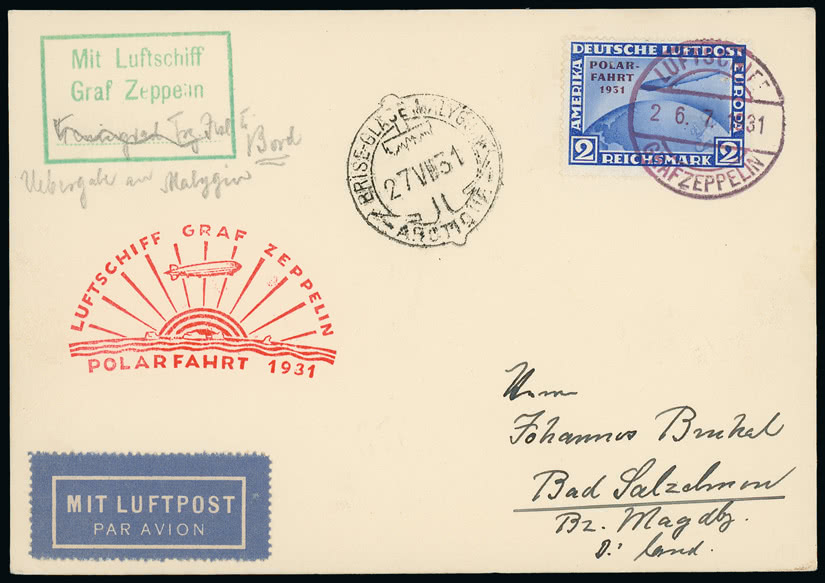 Mit Luftschiff
Graf Zeppelin
Bord
Uebergabe an Malygin
BRISE-GLACE MALYGUINE
27 VII 31
ARCTIQUE
DEUTSCHE LUFTPOST
AMERIKA
EUROPA
POLAR-
FAHRT
1931
2 REICHSMARK 2
LUFTSCHIFF
26.7.1931
GRAF ZEPPELIN
LUFTSCHIFF GRAF ZEPPELIN
POLARFAHRT 1931
MIT LUFTPOST
PAR AVION
Herrn
Johannes Bruckel
Bad Salzelmen
Bz. Magdbg.
D: land.